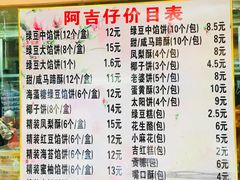 阿吉仔价目表
绿豆中馅饼(12个/盒) 12元
绿豆大馅饼(8个/盒) 12元
绿豆大馅饼(1个) 1.6元
甜/咸马蹄酥(6个/盒) 12元
海蛋椰馅饼(6个/盒)
椰子饼(8个/盒) 14元
精装凤梨酥(6个/盒) 13元
精装绿豆馅饼(6个/盒) 11元
精装海苔馅饼(6个/盒) 12元
精装蜜柚馅饼(6个/盒) 14元
绿豆中馅饼(10个/包) 8.5元
甜/咸马蹄酥(3个/包) 5元
凤梨酥(4个/包) 6元
椰子饼(3个/包) 4元
老婆饼(5个/包) 5元
蛋黄酥(3个/包) 6元
太阳饼(4个/包) 9元
绿豆糕(2个/包) 2元
花生酥(包) 6元
小麻花(包) 5元
吉红糕(包) 5元
贡糖(包)
嘴口酥(包) 4元